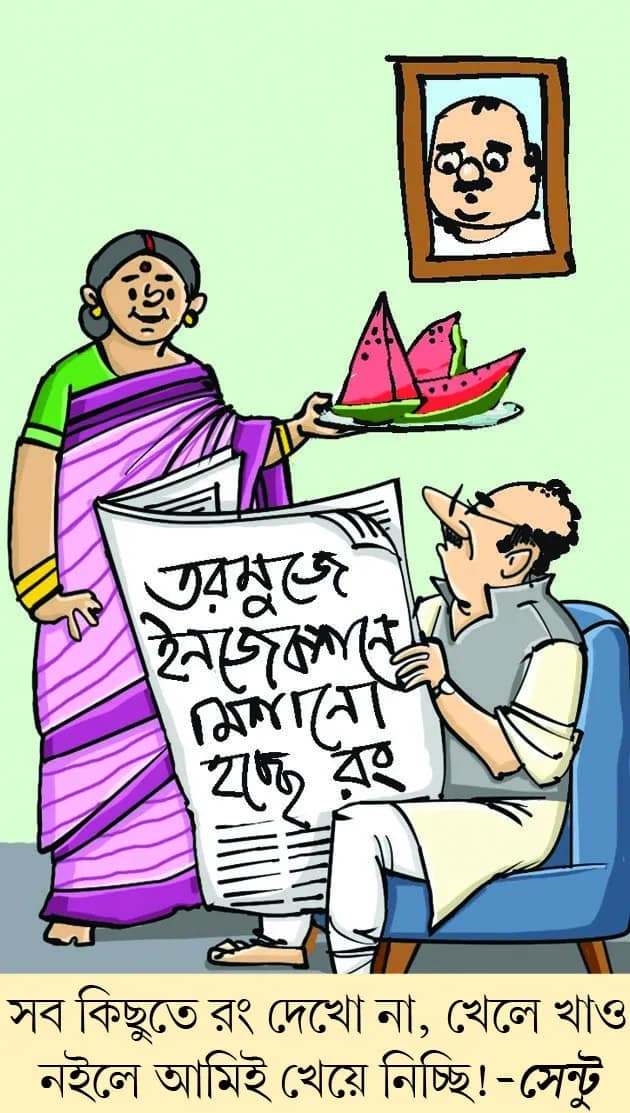 তরমুজে
ইনজেকশনে
মিশানো
হচ্ছে রং
সব কিছুতে রং দেখো না, খেলে খাও
নইলে আমিই খেয়ে নিচ্ছি! -সেন্টু